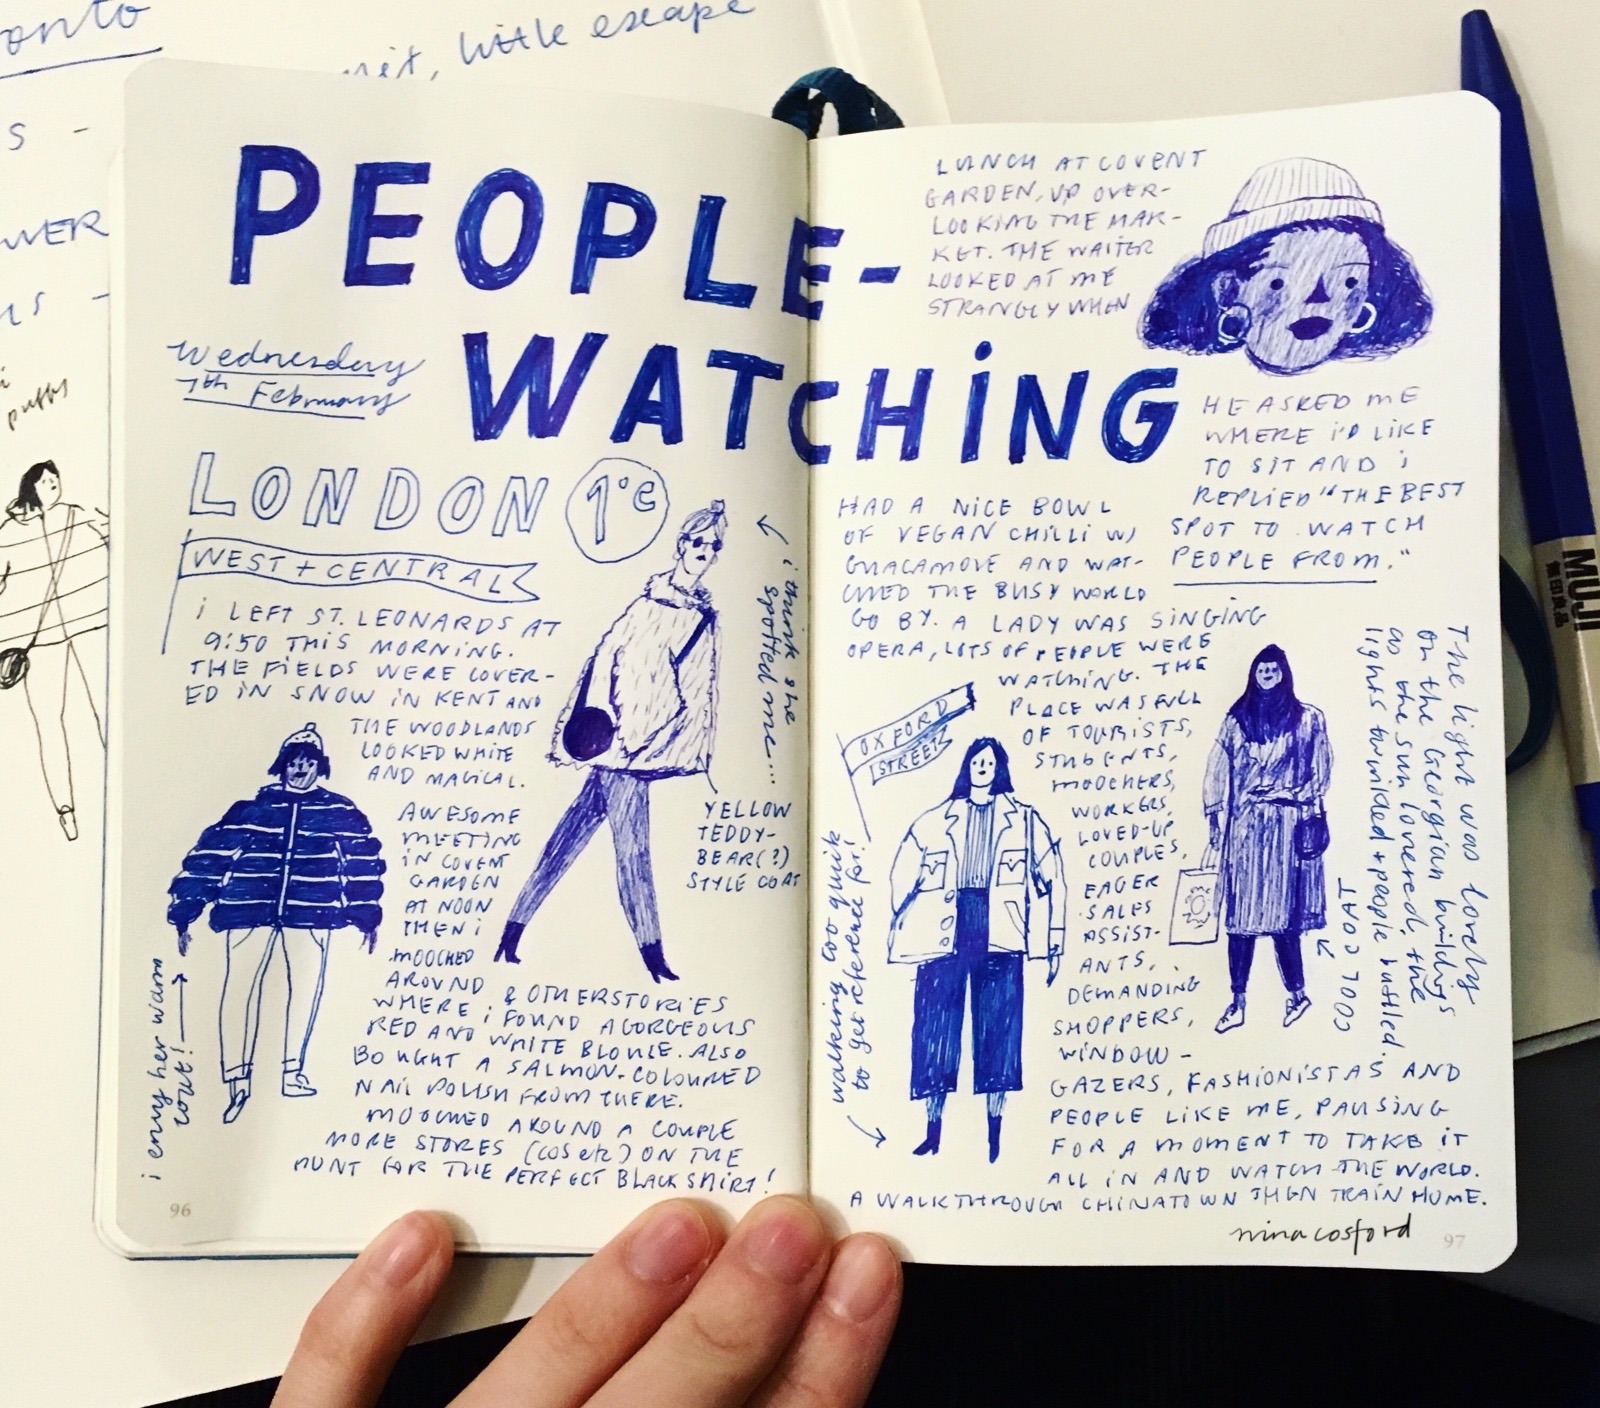 onto
visit, little escape
S -
WER
puffs
PEOPLE-
WATCHiNG
Wednesday
7th February
LONDON 1°C
WEST + CENTRAL
i LEFT ST. LEONARDS AT
9:50 THIS MORNING.
THE FIELDS WERE COVER-
ED IN SNOW IN KENT AND
THE WOODLANDS
LOOKED WHITE
AND MAGICAL.
AWESOME
MEETING
IN COVENT
GARDEN
AT NOON
THEN i
MOOCHED
AROUND & OTHERSTORIES
WHERE i FOUND A GORGEOUS
RED AND WHITE BLOUSE. ALSO
BOUGHT A SALMON-COLOURED
NAIL POLISH FROM THERE.
MOOCHED AROUND A COUPLE
MORE STORES (COS etc) ON THE
HUNT FOR THE PERFECT BLACK SHIRT!
i envy her warm
coat!
i think she
spotted me...
YELLOW
TEDDY-
BEAR(?)
STYLE COAT
96
LUNCH AT COVENT
GARDEN, UP OVER-
LOOKING THE MAR-
KET. THE WAITER
LOOKED AT ME
STRANGLY WHEN
HE ASKED ME
WHERE i'D LIKE
TO SIT AND i
REPLIED "THE BEST
SPOT TO WATCH
PEOPLE FROM."
HAD A NICE BOWL
OF VEGAN CHILLI W/
GUACAMOLE AND WAT-
CHED THE BUSY WORLD
GO BY. A LADY WAS SINGING
OPERA, LOTS OF PEOPLE WERE
WATCHING. THE
PLACE WAS FULL
OF TOURISTS,
STUDENTS,
MOOCHERS,
WORKERS,
LOVED-UP
COUPLES,
EAGER
SALES
ASSIST-
ANTS,
DEMANDING
SHOPPERS,
WINDOW-
GAZERS, FASHIONISTAS AND
PEOPLE LIKE ME, PAUSING
FOR A MOMENT TO TAKE IT
ALL IN AND WATCH THE WORLD.
A WALK THROUGH CHINATOWN THEN TRAIN HOME.
OXFORD
STREET
walking too quick
to get reference for!
The light was lovely
on the Georgian buildings
as the sun lowered, the
lights twinkled + people hustled.
COOL COAT
nina cosford
97
MUJI
無印良品